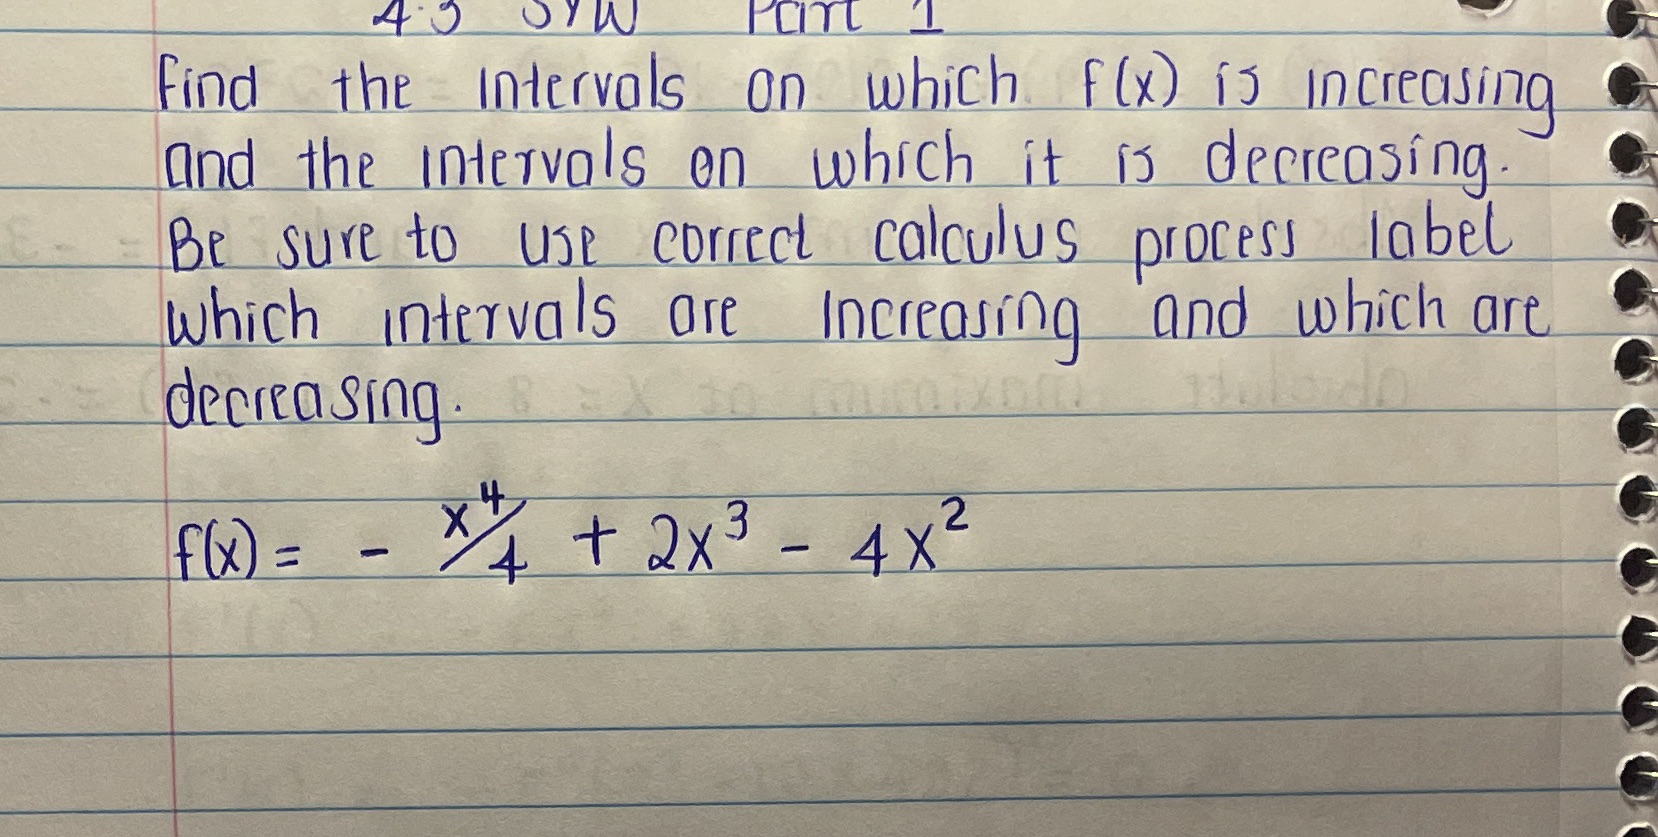 4.3 SYW Part 1
Find the intervals on which f(x) is increasing
and the intervals on which it is decreasing.
Be sure to use correct calculus process label
which intervals are increasing and which are
decreasing.
f(x) = - x⁴/4 + 2x³ - 4x²